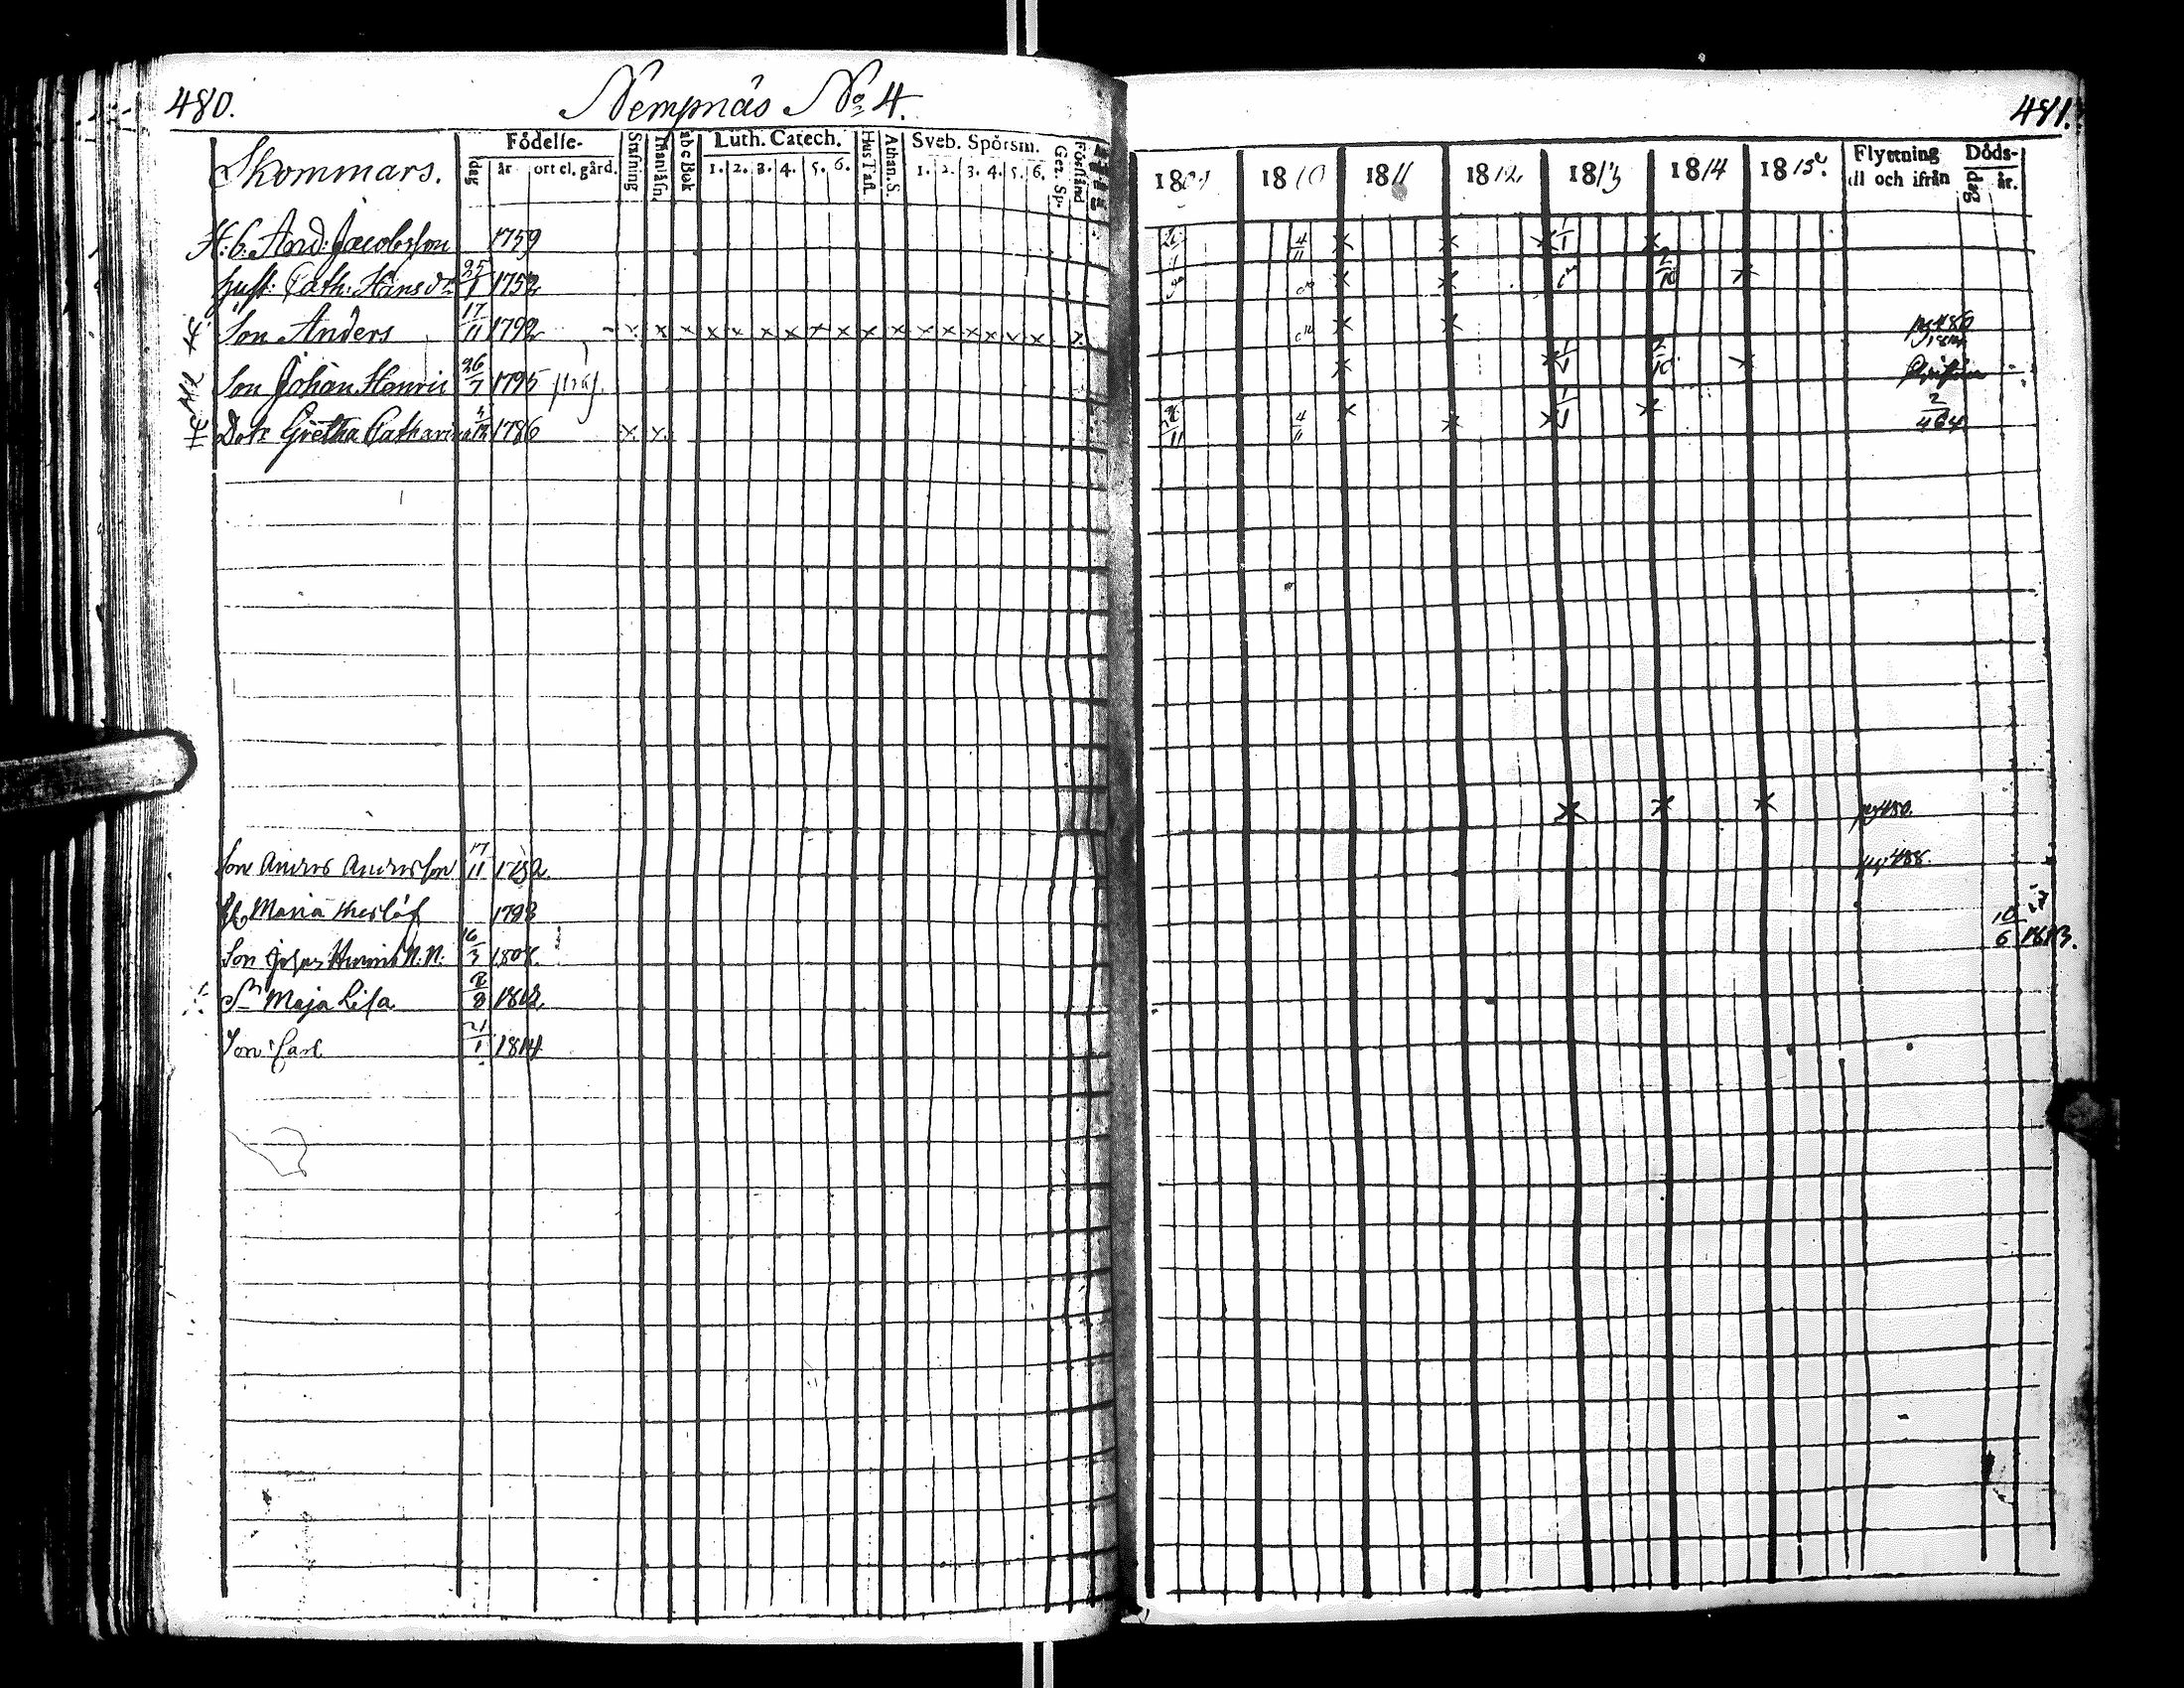 480.
Nempnäs No 4.
Skommars.
Födelse-
dag
år
ort el. gård.
Stafning
Innanläsn.
Abc Bok
Luth. Catech.
1. 2. 3. 4. 5. 6.
Hus Tafl.
Athan. S.
Sveb. Spörsm.
1. 2. 3. 4. 5. 6.
Gez. Sp.
Förstånd
H: b: And: Jacobsson 1759
hust: Cath: Hansdr 25/1 1752
Son Anders 17/11 1792 x x x x x x x x x x x x x x x x x x
Son Johan Henric 26/7 1795
Dotr Gretha Catharina 1786 x x
Son Anders Andersson 17/11 1792
Maria 1793
Son N.N. 16/3 1808.
Maja Lisa 8 1812.
Son Carl 21/1 1814
481.
1809
1810
1811
1812
1813
1814
1815
Flyttning
till och ifrån
Döds-
dag
år.
4/11 x x x 1/1 x
x x 2/10 x
x x pg 480
x x 1/1 2/10 x
4/11 x x x 1/1 x 2/464
x x x pg 480
pg 488
10/6 1813.